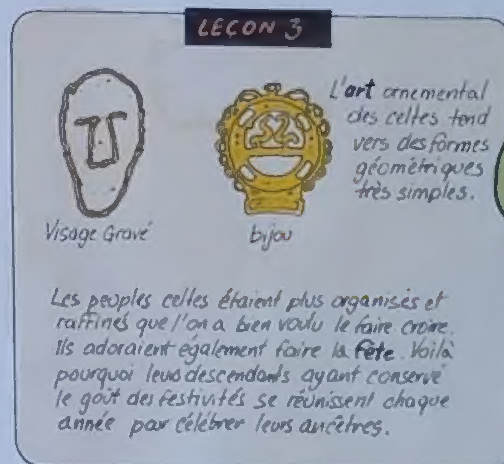 LEÇON 3
L'art ornemental
des celtes tend
vers des formes
géométriques
très simples.
Visage Gravé
bijou
Les peuples celtes étaient plus organisés et
raffinés que l'on a bien voulu le faire croire.
Ils adoraient également faire la fête. Voilà
pourquoi leurs descendants ayant conservé
le goût des festivités se réunissent chaque
année pour célébrer leurs ancêtres.